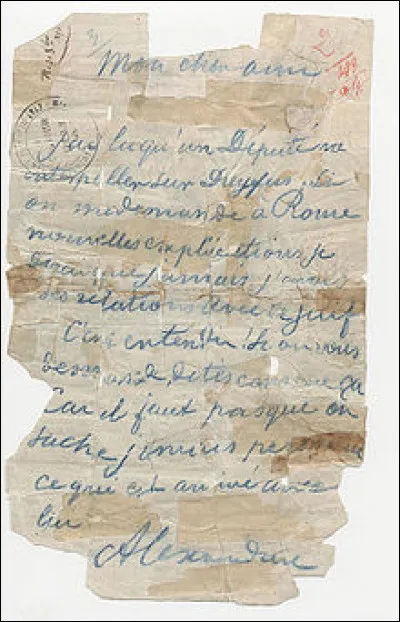 2
Mon cher ami
J'ai lu qu'un Député va
interpeller sur Dreyfus. Si
on me demande à Rome
nouvelles explications je
dirai que jamais j'avais
des relations avec ce juif
C'est entendu. Si on vous
demande, dites comme ça
Car il faut pas que on
sache jamais personne
ce qui est arrivé avec
lui
Alexandrine